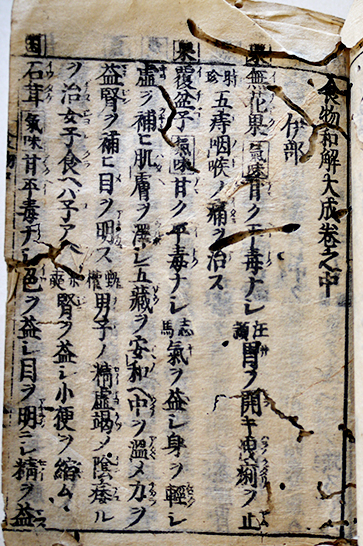 食物和解大成巻之中
伊部
果無花果 氣味甘ク平毒ナシ 汪頴 胃ヲ開キ洩痢ヲ止
時珍 五痔咽喉ノ痛ヲ治ス
果覆盆子 氣味甘ク平毒ナシ 志馬 氣ヲ益シ身ヲ輕シ
虚ヲ補ヒ肌膚ヲ澤シ五藏ヲ安和ヘ中ヲ温メ力ヲ
益腎ヲ補ヒ目ヲ明ス 甄權 男子ノ精虚竭ノ陰痿ル
ヲ治女子食ヘハ子アヘ 腎ヲ益シ小便ヲ縮ム
石茸 氣味甘平毒ナシ色ヲ益シ目ヲ明ニシ精ヲ益